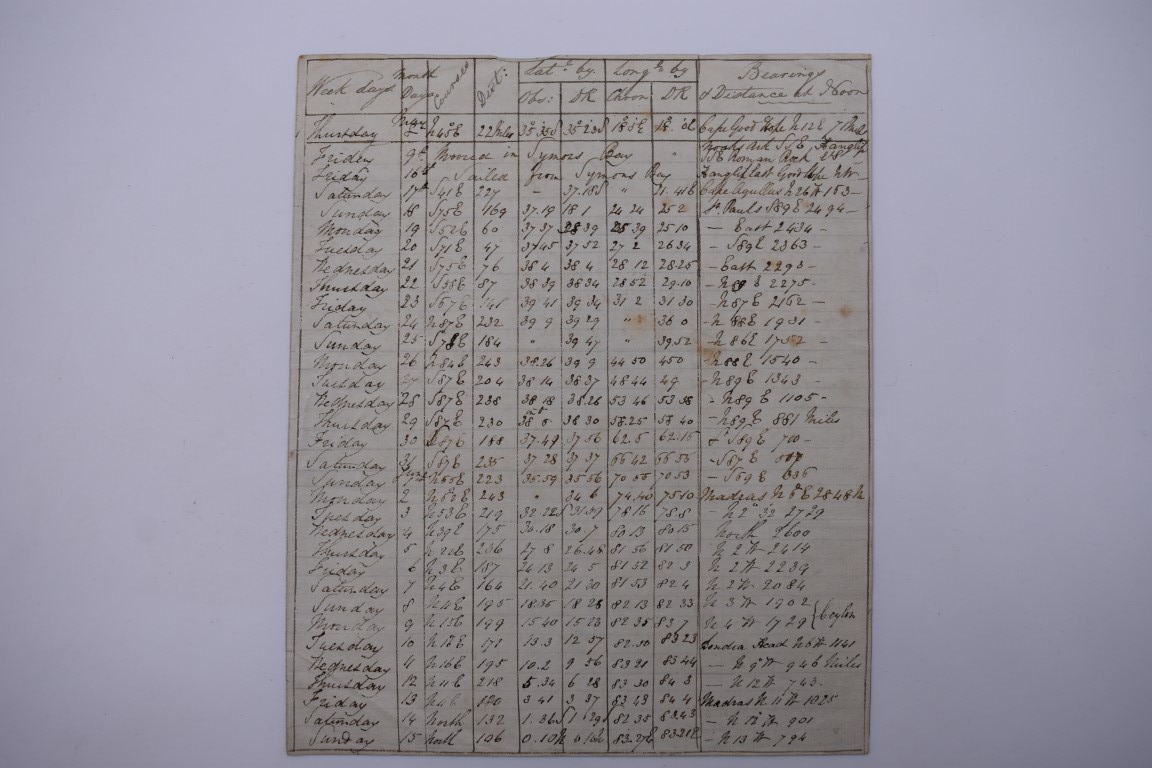 Week days Month Days Courses Dist: Lat.e by. Long.e by Bearings
Obs: DR Chron DR & Distance at Noon
Thursday N45E 35.35S 35.23S Cape Good Hope N12E 7 Miles
Friday 9th Moored in Symons Bay " SSE Roman Rock
Friday 16th Sailed from Symons Bay Good Hope
Saturday 17th S41E 227 – 37.18S " 21.41E Cape Agullus N26W 153 –
Sunday 18 S75E 169 37.19 18 1 24 24 25 2 St Pauls S89E 2494 –
Monday 19 S52E 60 37 37 38 39 25 39 25 10 – East 2434 –
Tuesday 20 S71E 47 37 45 37 52 27 2 26 34 – S89E 2363 –
Wednesday 21 S75E 76 38 4 38 4 28 12 28.25 – East 2293 –
Thursday 22 S35E 87 38 39 38 34 28 52 29.10 – N89E 2275 –
Friday 23 S67E 141 39 41 39 34 31 2 31 30 – N87E 2162 –
Saturday 24 N87E 232 39 9 39 29 " 36 0 – N88E 1931 –
Sunday 25 S78E 184 " 39 47 " 39.52 – N86E 1752 –
Monday 26 N84E 243 38.26 39 9 44 50 45 0 – N88E 1540 –
Tuesday 27 S87E 204 38 14 38 37 48 44 49 – N89E 1343 –
Wednesday 28 S87E 238 38 18 38.26 53 46 53 58 – N89E 1105 –
Thursday 29 S87E 230 38 8 38 30 58.25 58 40 – N89E 881 Miles
Friday 30 S87E 188 37.49 37 56 62.5 62.15 S89E 700 –
Saturday 31 S87E 235 37 28 37 37 66 42 66 55 – S87E 507
Sunday N65E 223 35.59 35 56 70 55 70 53 – S69E 336
Monday 2 N52E 243 " 34 6 74.40 75 10 Madras N6E 2848 M
Tuesday 3 N53E 219 32.22S 31.59 78 16 78.8 – N2 32 2729
Wednesday 4 N39E 175 30.18 30.7 80 13 80 15 North 2600
Thursday 5 N22E 236 27 8 26.48 81 56 81 50 N 2 W 2414
Friday 6 N3E 187 24 13 24 5 81 52 82 3 N 2 W 2239
Saturday 7 N4E 164 21.40 21 30 81 53 82 4 N 2 W 2084
Sunday 8 N4E 195 18.35 18 28 82 13 82 33 N 3 W 1902
Monday 9 N13E 199 15 40 15 23 82 35 83 7 N 4 W 1729 Ceylon
Tuesday 10 N12E 171 13.3 12 57 82.50 83 23 Head N6W 1141
Wednesday 11 N16E 195 10.2 9 56 83 21 83 44 – N 9 W 946 Miles
Thursday 12 N4E 218 5.34 6 28 83 30 84 3 – N 12 W 743
Friday 13 N4E 120 3 41 3 37 83 43 84 4 Madras N 11 W 1025
Saturday 14 North 132 1.36S 1 29S 82 35 83.43 – N 12 W 901
Sunday 15 North 106 0.10N 0.16N 83.27E 83.21E – N 13 W 794